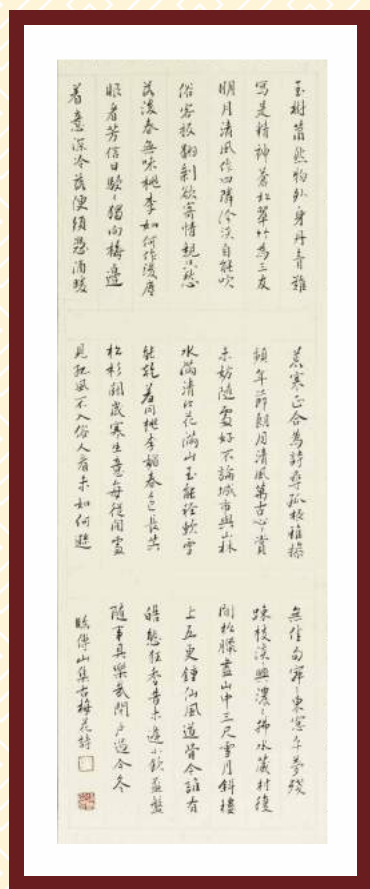 玉樹蕭然物外身丹青難
寫是精神蒼松翠竹為三友
明月清風作四隣冷淡自能吹
俗客剩欲寄情親愁
落後春無味桃李如何作後塵
眼看芳信日駸〻獨向梅邊
着意深冷蕊便須愁
荒寒正合為詩尋孤根雅操
頻年節朗月清風萬古心賞
未妨隨處好不論城市與山林
水滿清江花滿山玉能輕軟雪
能乾着同桃李媚春色長共
松杉鬥歲寒生意每從閒處
見孤風不入俗人看未如何避
無佳句東窗午夢殘
踈枝淡〻興濃〻水藏村復
間松盡山中三尺雪月斜樓
上五更鐘仙風道骨今誰有
皓態狂香昔未逢小飲盃盤
隨事具樂哉閉戶過今冬
臨傅山集古梅花詩